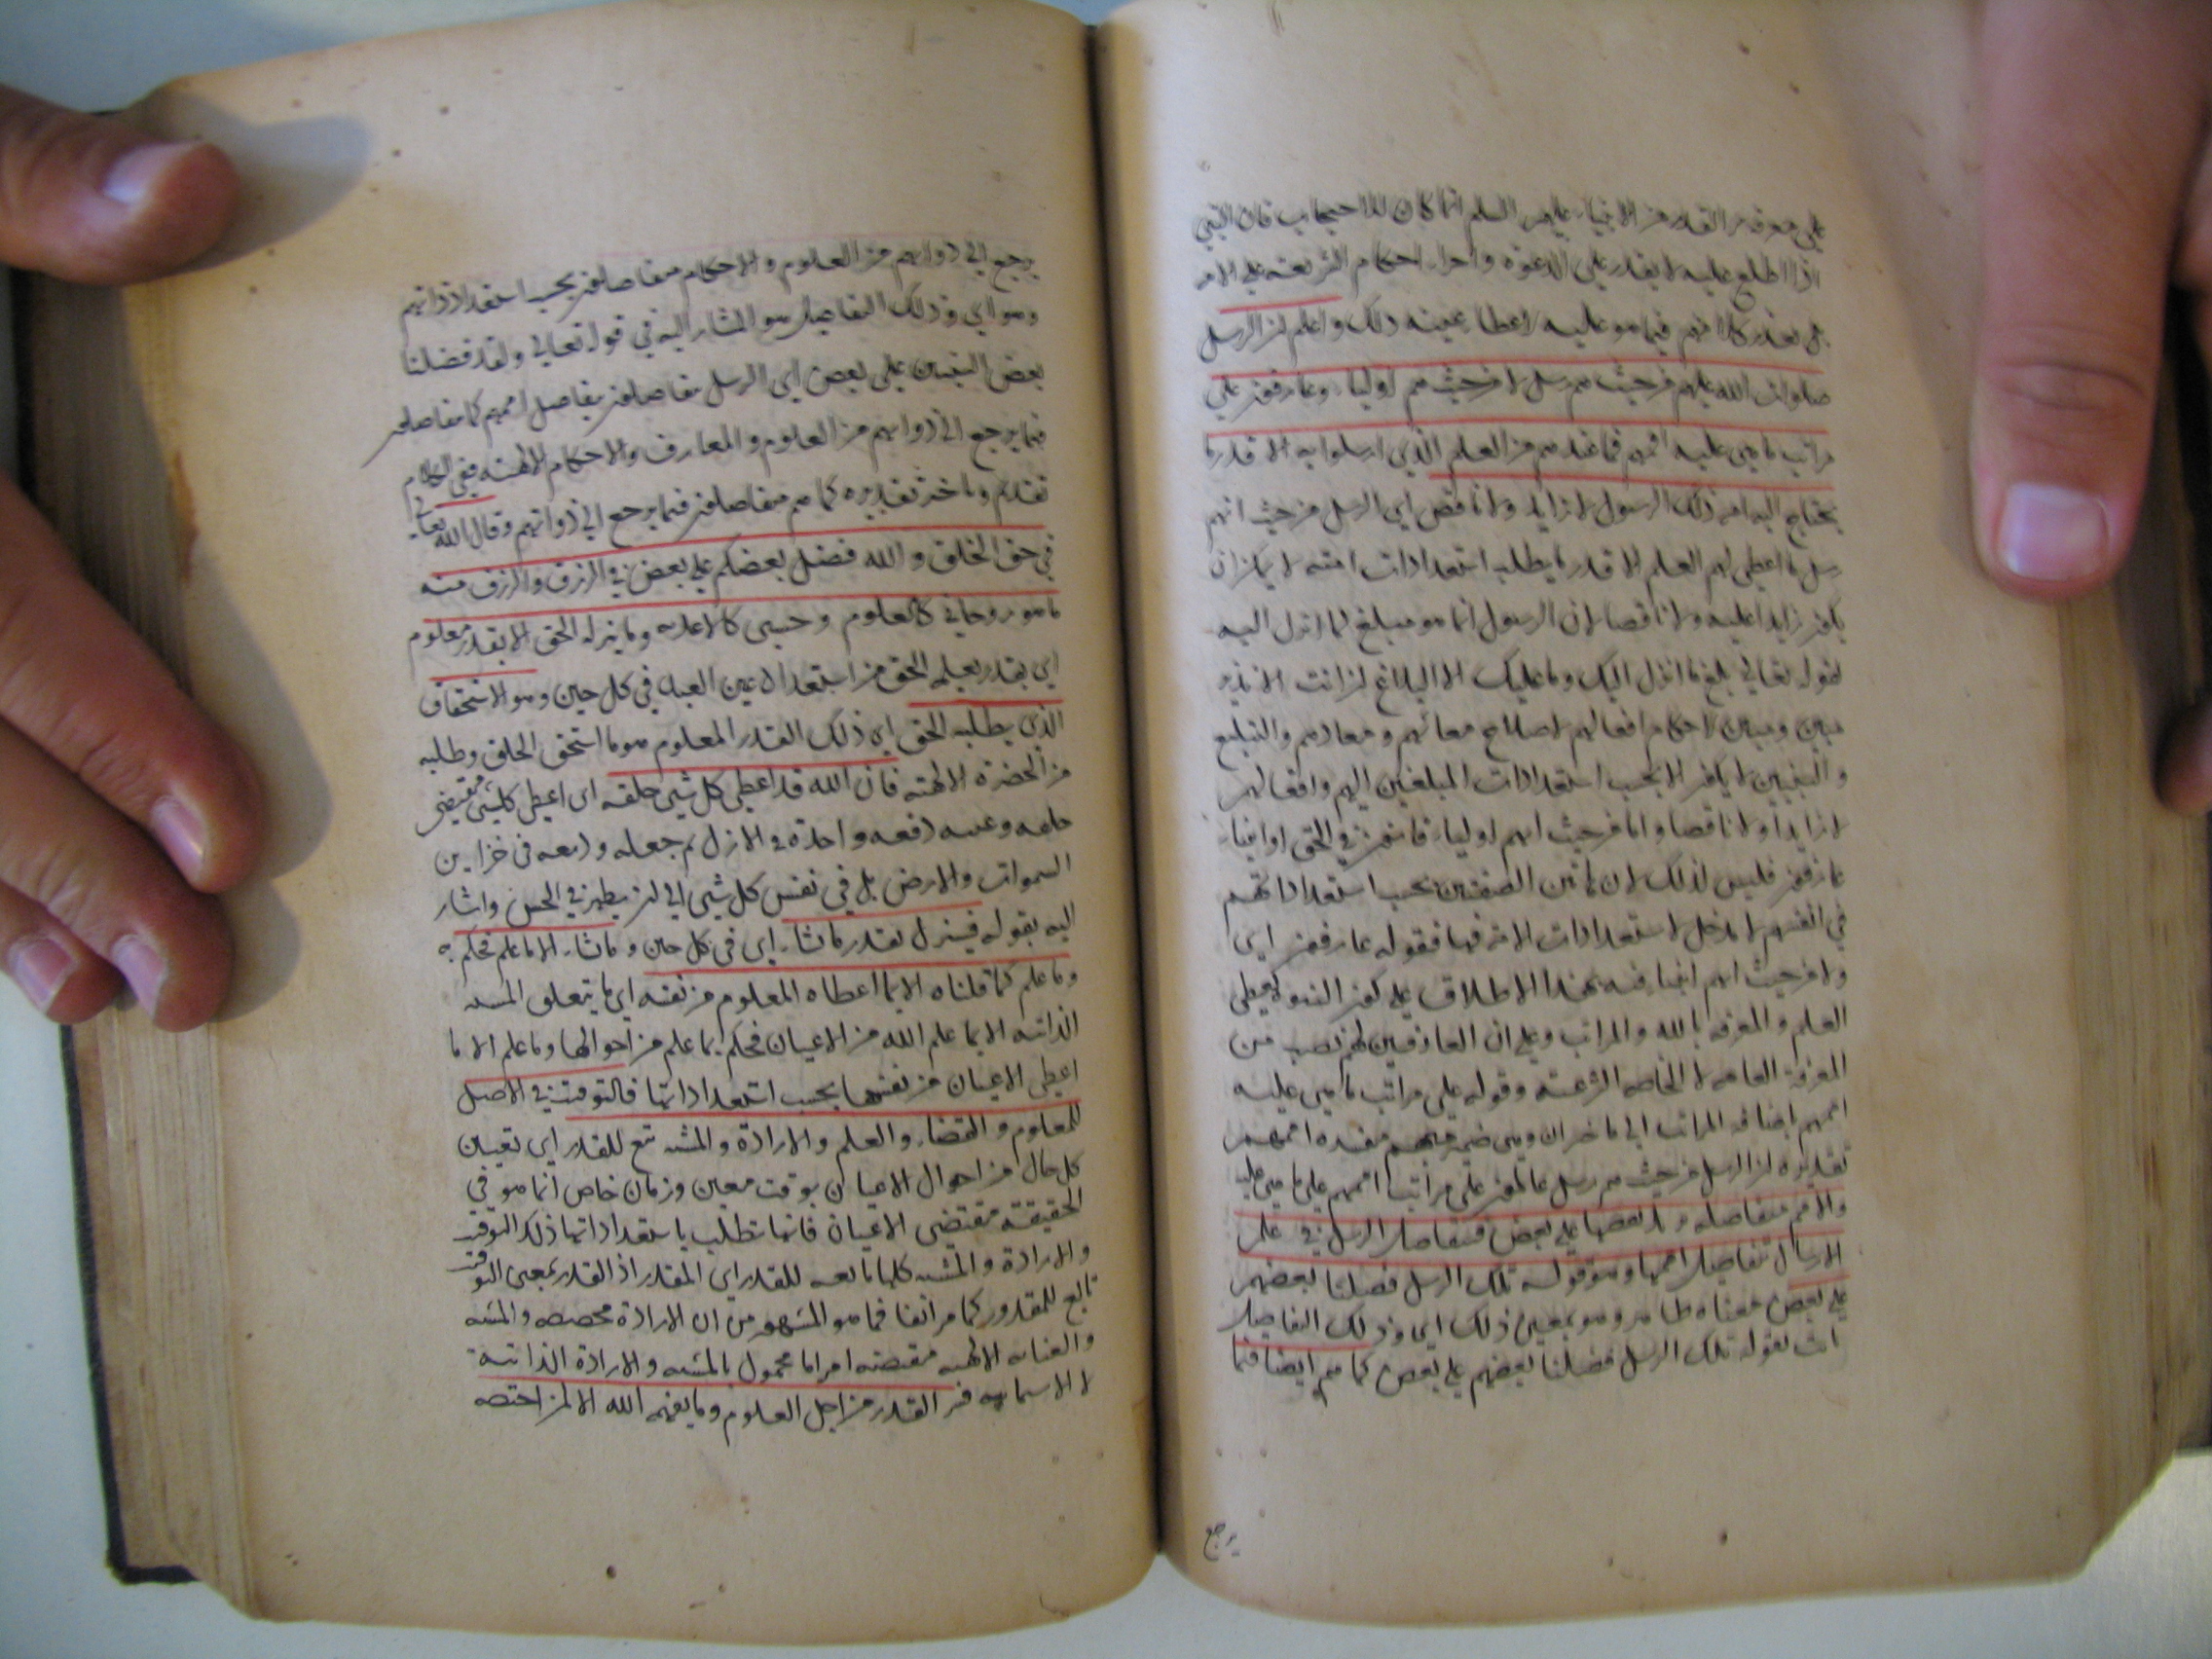 على معرفة القدر من الانبياء عليهم السلم انما كان للاحتجاب فان النبي
اذا اطلع عليه لا يقدر على الدعوة واجراء احكام الشريعة على الامة
بل يعذر كلا منهم فيما هو عليه لاعطاء عينه ذلك واعلم ان الرسل
صلوات الله عليهم من حيث هم رسل لا من حيث هم اولياء وعارفون على
مراتب ما هي عليه اممهم فما عندهم من العلم الذي ارسلوا به الا قدر ما
يحتاج اليه امة ذلك الرسول لا زايد ولا ناقص اي الرسل من حيث انهم
رسل ما اعطى لهم العلم الا قدر ما يطلبه استعدادات امته لا يمكن ان
يكون زايدا عليه ولا ناقصا لان الرسول انما هو مبلغ لما انزل اليه
لقوله تعالى بلغ ما انزل اليك وما عليك الا البلاغ ان انت الا نذير
مبين ومبين لاحكام افعالهم لاصلاح معاشهم ومعادهم والتبليغ
والتبيين لا يكون الا بحسب استعدادات المبلغين اليهم وافعالهم
لا زايدا ولا ناقصا واما من حيث انهم اولياء فانون في الحق او انبياء
عارفون فليس لذلك لان هاتين الصفتين بحسب استعداداتهم
في انفسهم لا مدخل لاستعدادات الامة فيها فقوله عارفون اي
ولا من حيث انهم انبياء نبه بهذا الاطلاق على كون النبوة يعطي
العلم والمعرفة بالله والمراتب وعلى ان العارفين لهم نصيب من
المعرفة العامة لا الخاصة الشرعية وقوله على مراتب ما هي عليه
اممهم اضافة المراتب الى ما خبر ان وهي ضمير مبهم مفسره اممهم
تقديره ان الرسل من حيث هم رسل عالمون على مراتب اممهم على ما هي عليه
والامم متفاضلة يزيد بعضها على بعض فيتفاضل الرسل في علم
الارسال بتفاضل اممها وهو قوله تلك الرسل فضلنا بعضهم
على بعض معناه ظاهر وهو بمعنى ذلك اي وذلك التفاضل
اشار بقوله تلك الرسل فضلنا بعضهم على بعض كما هم ايضا فيما
يرجع
يرجع الى ذواتهم من العلوم والاحكام متفاضلون بحسب استعداداتهم
وهو اي وذلك التفاضل هو المشار اليه في قوله تعالى ولقد فضلنا
بعض النبيين على بعض اي الرسل متفاضلون بتفاضل اممهم كما متفاضلون
فيما يرجع الى ذواتهم من العلوم والمعارف والاحكام الالهية ففي الكلام
تقديم وتاخير تقديره كما هم متفاضلون فيما يرجع الى ذواتهم وقال الله تعالى
في حق الخلق والله فضل بعضكم على بعض في الرزق والرزق منه
ما هو روحاني كالعلوم وحسي كالاغذية وما ينزله الحق الا بقدر معلوم
اي بقدر يعلمه الحق من استعداد عين العبد في كل حين وهو الاستحقاق
الذي يطلبه الخلق اي ذلك القدر المعلوم هو ما استحق الخلق وطلبه
من الحضرة الالهية فان الله قد اعطى كل شيء خلقه اي اعطى كل شيء مقتضى
خلقه وعينه دفعة واحدة في الازل ثم جعله وديعة في خزاين
السموات والارض بل في نفس كل شيء الى ان يظهر في الحس واشار
اليه بقوله فينزل بقدر ما شاء اي في كل حين وما شاء الا ما علم فحكم به
وما علم كما قلناه الا بما اعطاه المعلوم من نفسه اي ما يتعلق المشية
الذاتية الا بما علم الله من الاعيان فحكم بما علم من احوالها وما علم الا ما
اعطى الاعيان من نفسها بحسب استعداداتها فالتوقيت في الاصل
للمعلوم والقضاء والعلم والارادة والمشية تبع للقدر اي تعيين
كل حال من احوال الاعيان بوقت معين وزمان خاص انما هو في
الحقيقة مقتضى الاعيان فانها تطلب باستعداداتها ذلك التوقيت
والارادة والمشية كلها تابعة للقدر اي المقدر اذ القدر بمعنى التوقيت
تابع للمقدور كما مر انفا فما هو المشهور من ان الارادة مخصصة والمشية
والعناية الالهية مقتضية امرا ما محمول بالمشية والارادة الذاتية
لا الاسمائية فسر القدر من اجل العلوم وما يفهمه الله الا لمن اختصه